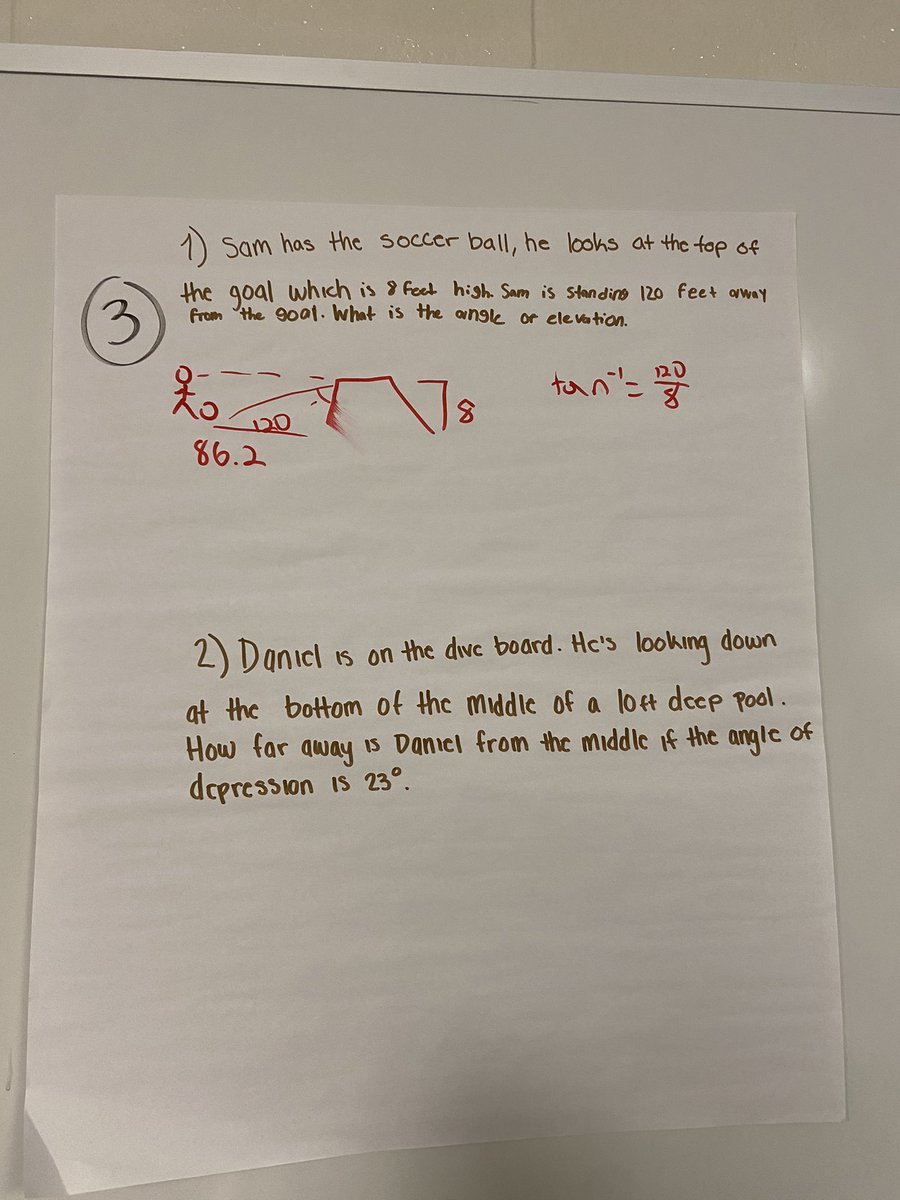 1) Sam has the soccer ball, he looks at the top of
the goal which is 8 feet high. Sam is standing 120 feet away
from the goal. What is the angle or elevation.
3
tan⁻¹ = 120/8
120
8
86.2
2) Daniel is on the dive board. He's looking down
at the bottom of the middle of a 10ft deep pool.
How far away is Daniel from the middle if the angle of
depression is 23°.